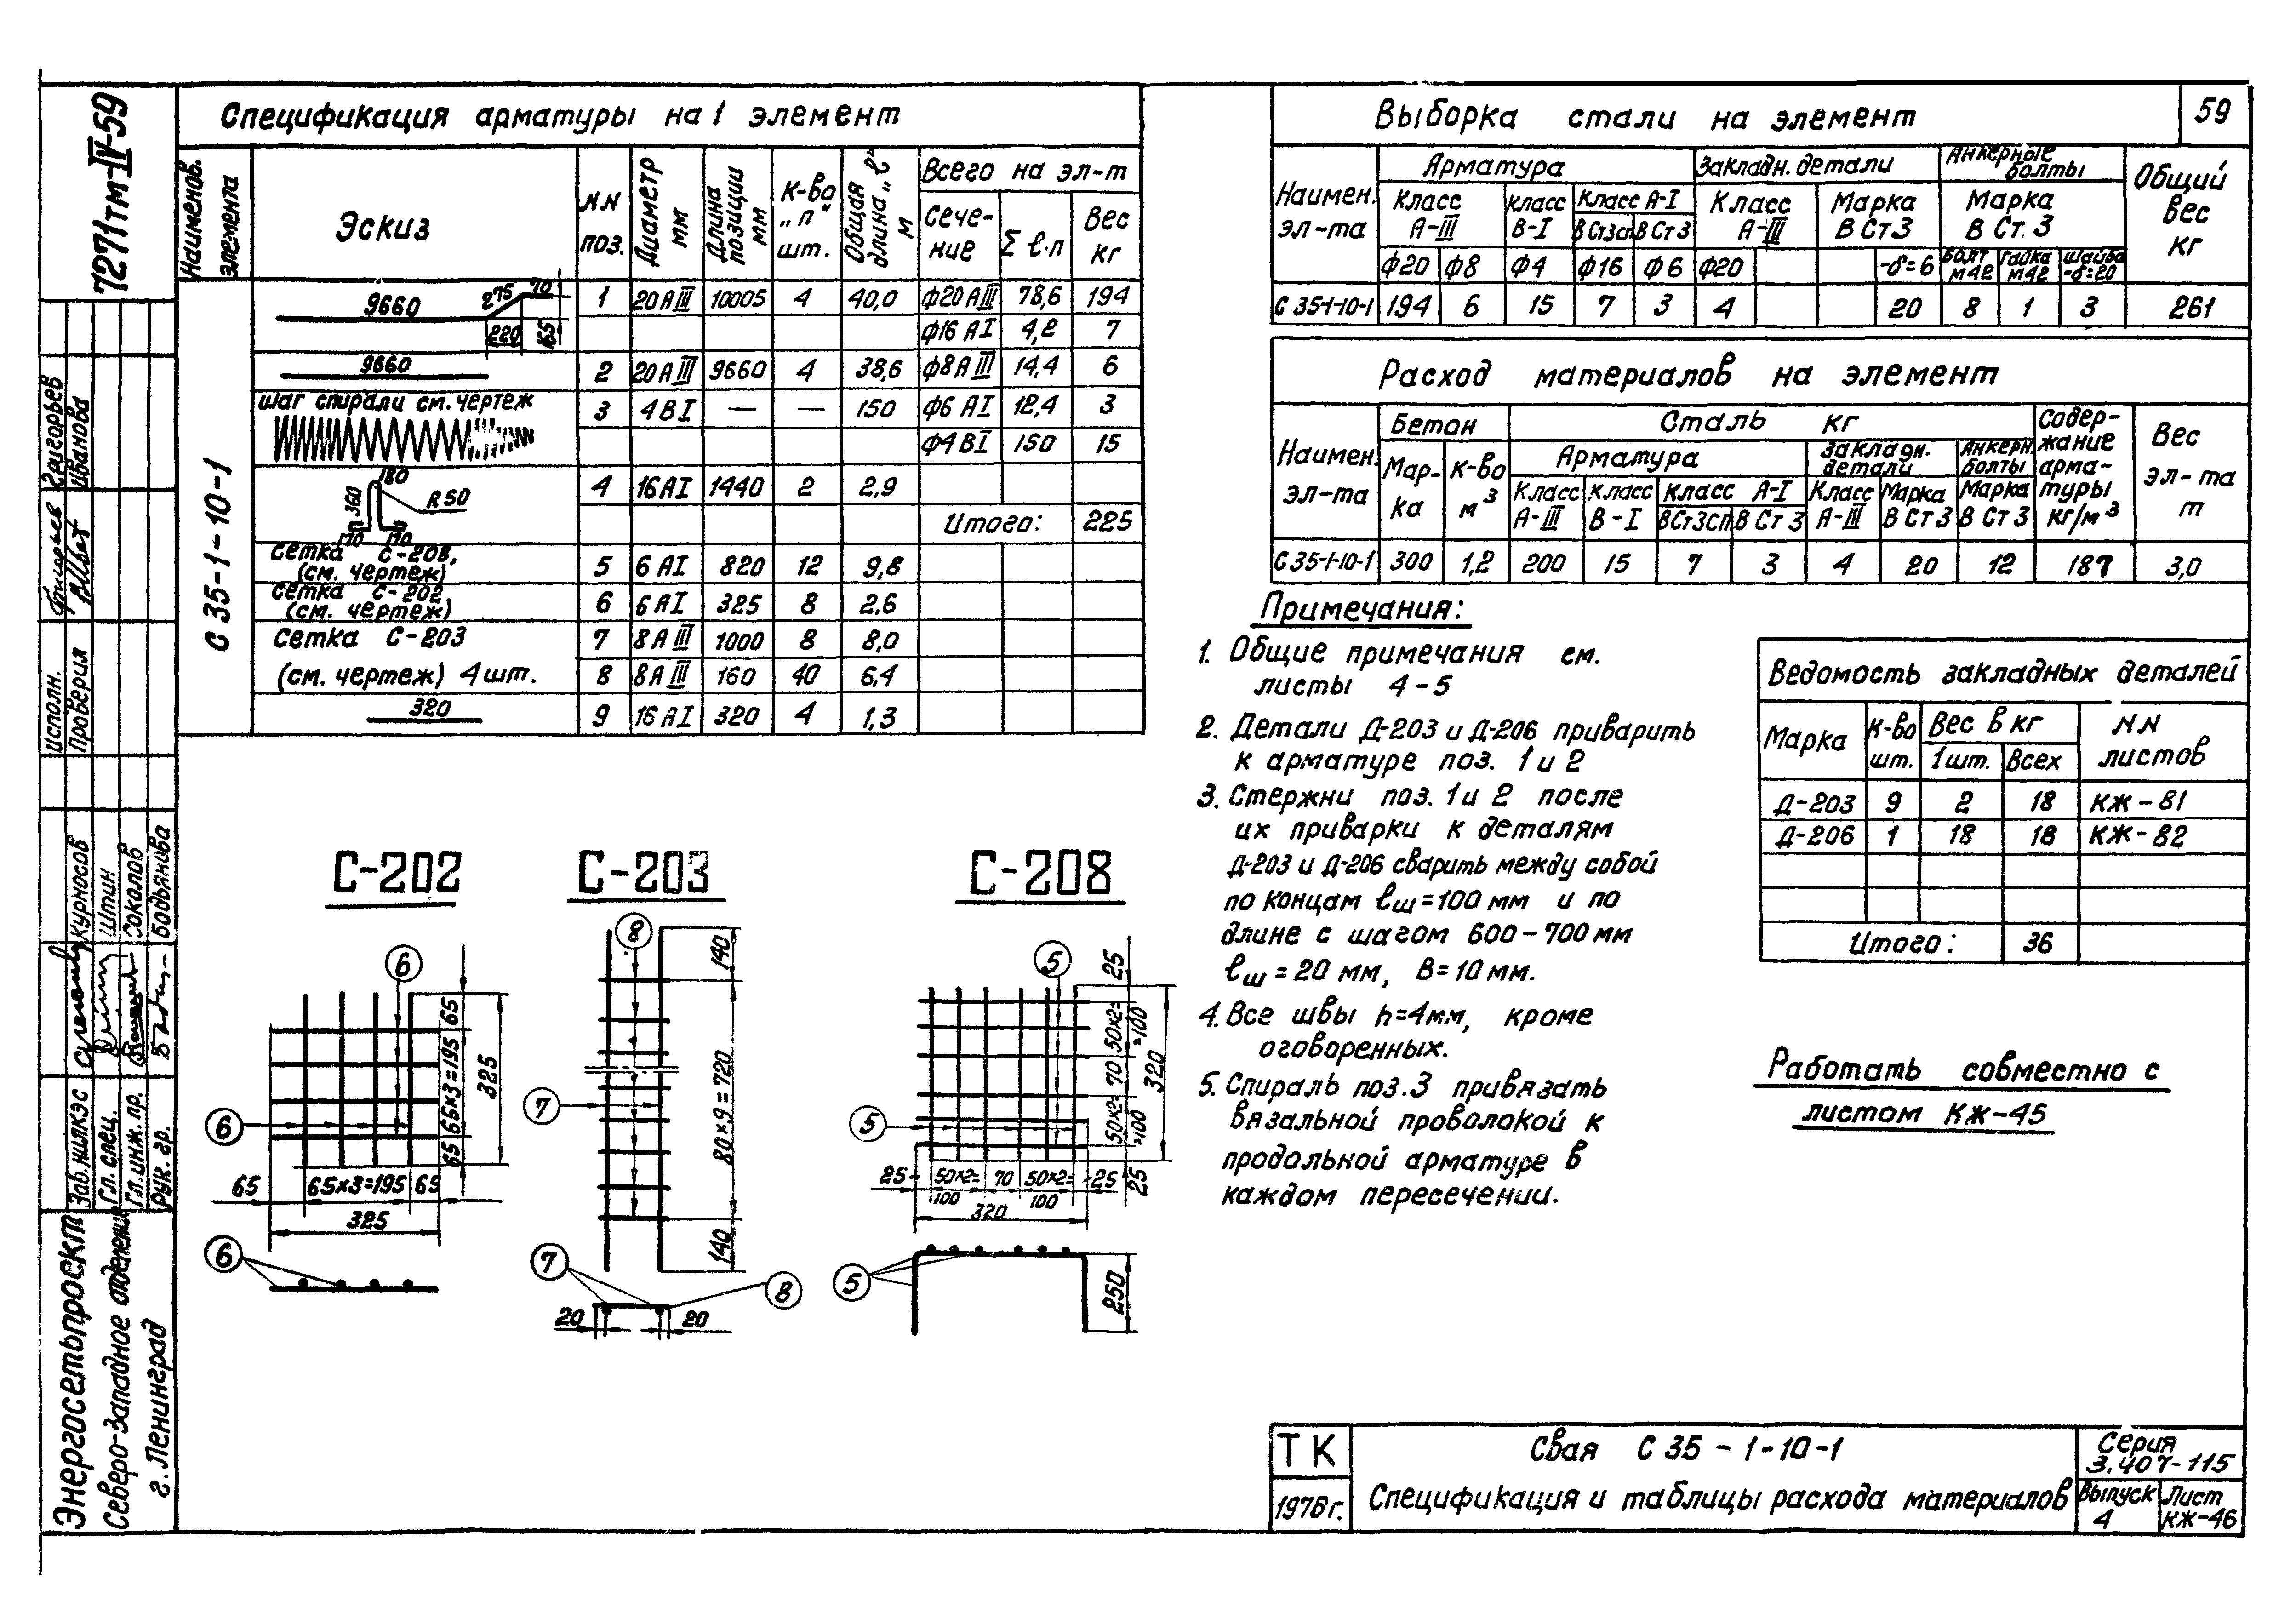 7271тм-IV-59
Спецификация арматуры на 1 элемент
Наименов. элемента
Эскиз
NN поз.
Диаметр мм
Длина позиции мм
К-во "п" шт.
Общая длина "ℓ" м
Всего на эл-т
Сече-ние
Σ ℓ·п
Вес кг
С 35-1-10-1
9660 275 70 220 165
1 20 А III 10005 4 40,0 ф20 А III 78,6 194
ф16 АI 4,2 7
9660
2 20 А III 9660 4 38,6 ф8 А III 14,4 6
шаг спирали см. чертеж
3 4 В I — — 150 ф6 АI 12,4 3
ф4 ВI 150 15
180 360 R 50 170 170
4 16 АI 1440 2 2,9
Итого: 225
сетка С-208,
(см. чертеж)
5 6 АI 820 12 9,8
сетка С-202
(см. чертеж)
6 6 АI 325 8 2.6
Сетка С-203
7 8 А III 1000 8 8,0
(см. чертеж) 4 шт.
8 8 А III 160 40 6,4
320
9 16 АI 320 4 1,3
Выборка стали на элемент
59
Наимен. эл-та
Арматура
Закладн. детали
Анкерные болты
Общий вес кг
Класс А-III
Класс В-I
Класс А-I
Класс А-III
Марка В Ст 3
Марка В Ст. 3
В Ст3сп В Ст 3
ф20 ф8 ф4 ф16 ф6 ф20 -δ=6
Болт М42 Гайка М42 Шайба -δ=20
С 35-1-10-1 194 6 15 7 3 4 20 8 1 3 261
Расход материалов на элемент
Наимен. эл-та
Бетон
Сталь кг
Содер-жание арма-туры кг/м³
Вес эл-та т
Мар-ка
к-во м³
Арматура
Закладн. детали
Анкерн. болты
Класс А-III
Класс В-I
Класс А-I
В Ст3сп В Ст 3
Класс А-III
Марка В Ст 3
Марка В Ст 3
С 35-1-10-1 300 1,2 200 15 7 3 4 20 12 187 3,0
Примечания:
1. Общие примечания см.
листы 4-5
2. Детали Д-203 и Д-206 приварить
к арматуре поз. 1 и 2
3. Стержни поз. 1 и 2 после
их приварки к деталям
Д-203 и Д-206 сварить между собой
по концам ℓш=100 мм и по
длине с шагом 600-700 мм
ℓш=20 мм, В=10 мм.
4. Все швы h=4 мм, кроме
оговоренных.
5. Спираль поз. 3 привязать
вязальной проволокой к
продольной арматуре в
каждом пересечении.
Ведомость закладных деталей
Марка
К-во шт.
Вес в кг
1 шт. Всех
NN листов
Д-203 9 2 18 КЖ-81
Д-206 1 18 18 КЖ-82
Итого: 36
Работать совместно с
листом КЖ-45
С-202
6
6
65
66×3=195
65
325
65 65×3=195 65
325
6
С-203
8
7
140
80×9=720
140
7
8
20 20
С-208
5
5
25
50×2=100
70
50×2=100
25
320
25 50×2=100 70 50×2=100 25
320
5
250
Григорьев
Иванова
Исполн.
Проверил
Курносов
Штин
Соколов
Бодьянова
Зав. НИЛКЭС
Гл. спец.
Гл. инж. пр.
Рук. гр.
Энергосетьпроект
Северо-Западное отделение
г. Ленинград
ТК
1976 г.
Свая С 35-1-10-1
Спецификация и таблицы расхода материалов
Серия
3.407-115
Выпуск 4
Лист КЖ-46